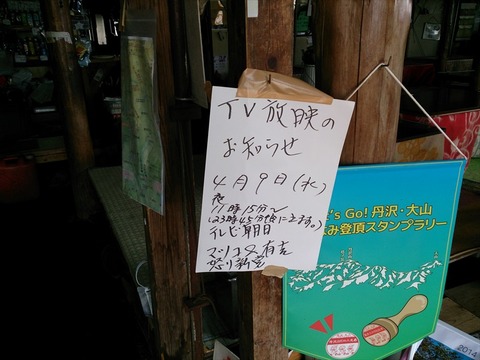 TV放映の
お知らせ
4月9日(水)
夜
11時15分〜
(23時45分頃に出ます。)
テレビ朝日
マツコ&有吉
怒り新党
's Go! 丹沢・大山
み登頂スタンプラリー
2014